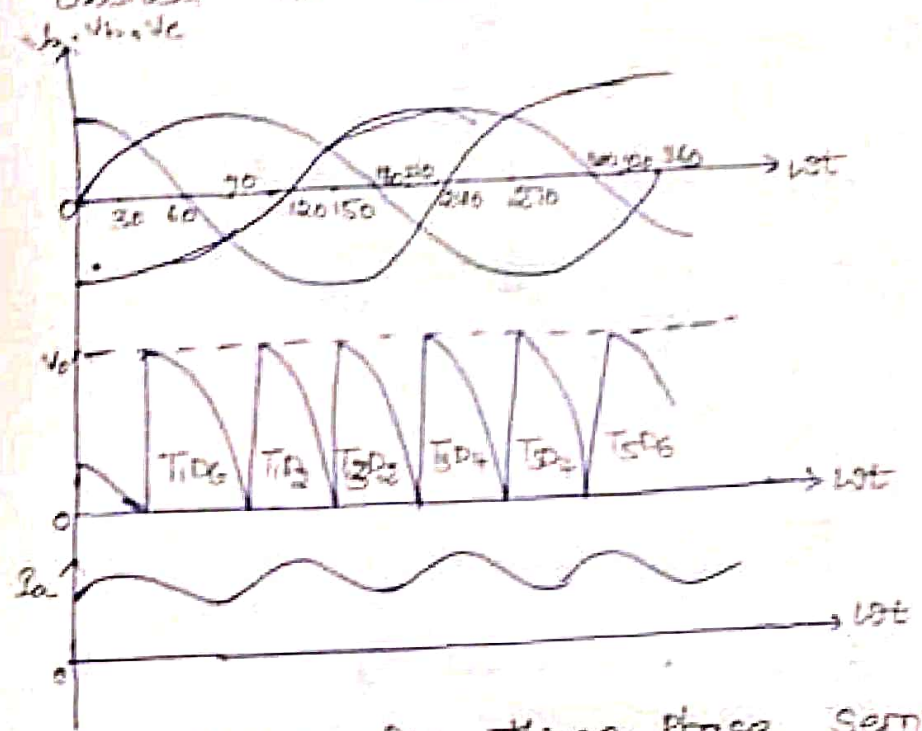 Va, Vb, Vc
0 30 60 90 120 150 240 270 360 wt
Vo
T1D6 T1D2 T3D2 T3D4 T5D4 T5D6 wt
0
Ia
wt
0
three phase sem